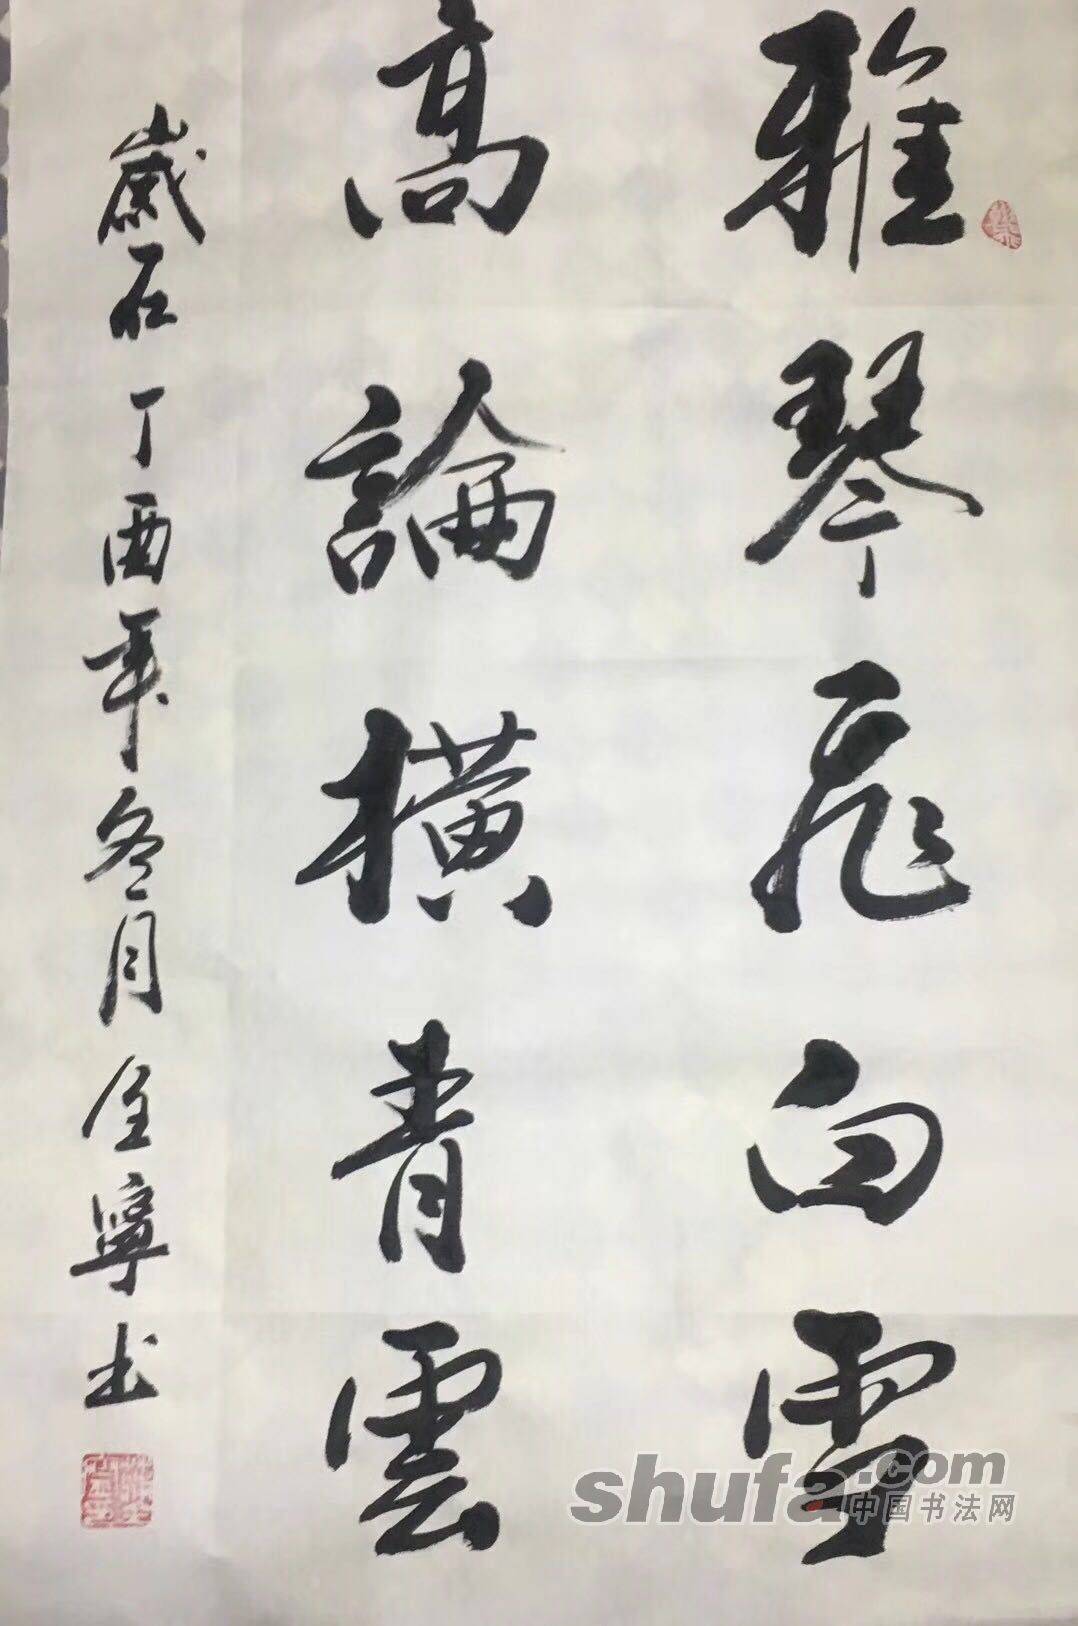 雅琴飛白雪
高論橫青雲
歲在丁酉年冬月全寧书
shufa.com
中国书法网